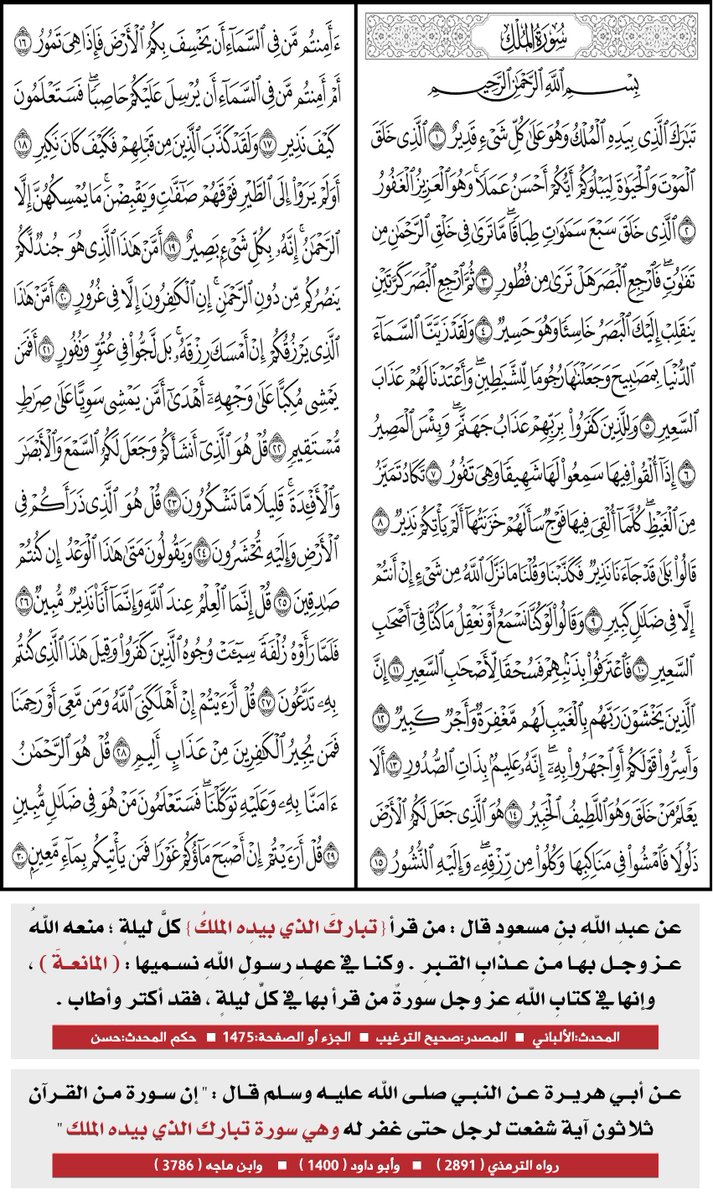 سُورَةُ المُلۡكِ
بِسۡمِ ٱللَّهِ ٱلرَّحۡمَٰنِ ٱلرَّحِيمِ
تَبَٰرَكَ ٱلَّذِي بِيَدِهِ ٱلۡمُلۡكُ وَهُوَ عَلَىٰ كُلِّ شَيۡءٖ قَدِيرٌ ١ ٱلَّذِي خَلَقَ
ٱلۡمَوۡتَ وَٱلۡحَيَوٰةَ لِيَبۡلُوَكُمۡ أَيُّكُمۡ أَحۡسَنُ عَمَلٗاۚ وَهُوَ ٱلۡعَزِيزُ ٱلۡغَفُورُ
٢ ٱلَّذِي خَلَقَ سَبۡعَ سَمَٰوَٰتٖ طِبَاقٗاۖ مَّا تَرَىٰ فِي خَلۡقِ ٱلرَّحۡمَٰنِ مِن
تَفَٰوُتٖۖ فَٱرۡجِعِ ٱلۡبَصَرَ هَلۡ تَرَىٰ مِن فُطُورٖ ٣ ثُمَّ ٱرۡجِعِ ٱلۡبَصَرَ كَرَّتَيۡنِ
يَنقَلِبۡ إِلَيۡكَ ٱلۡبَصَرُ خَاسِئٗا وَهُوَ حَسِيرٞ ٤ وَلَقَدۡ زَيَّنَّا ٱلسَّمَآءَ
ٱلدُّنۡيَا بِمَصَٰبِيحَ وَجَعَلۡنَٰهَا رُجُومٗا لِّلشَّيَٰطِينِۖ وَأَعۡتَدۡنَا لَهُمۡ عَذَابَ
ٱلسَّعِيرِ ٥ وَلِلَّذِينَ كَفَرُواْ بِرَبِّهِمۡ عَذَابُ جَهَنَّمَۖ وَبِئۡسَ ٱلۡمَصِيرُ
٦ إِذَآ أُلۡقُواْ فِيهَا سَمِعُواْ لَهَا شَهِيقٗا وَهِيَ تَفُورُ ٧ تَكَادُ تَمَيَّزُ
مِنَ ٱلۡغَيۡظِۖ كُلَّمَآ أُلۡقِيَ فِيهَا فَوۡجٞ سَأَلَهُمۡ خَزَنَتُهَآ أَلَمۡ يَأۡتِكُمۡ نَذِيرٞ ٨
قَالُواْ بَلَىٰ قَدۡ جَآءَنَا نَذِيرٞ فَكَذَّبۡنَا وَقُلۡنَا مَا نَزَّلَ ٱللَّهُ مِن شَيۡءٍ إِنۡ أَنتُمۡ
إِلَّا فِي ضَلَٰلٖ كَبِيرٖ ٩ وَقَالُواْ لَوۡ كُنَّا نَسۡمَعُ أَوۡ نَعۡقِلُ مَا كُنَّا فِيٓ أَصۡحَٰبِ
ٱلسَّعِيرِ ١٠ فَٱعۡتَرَفُواْ بِذَنۢبِهِمۡ فَسُحۡقٗا لِّأَصۡحَٰبِ ٱلسَّعِيرِ ١١ إِنَّ
ٱلَّذِينَ يَخۡشَوۡنَ رَبَّهُم بِٱلۡغَيۡبِ لَهُم مَّغۡفِرَةٞ وَأَجۡرٞ كَبِيرٞ ١٢
وَأَسِرُّواْ قَوۡلَكُمۡ أَوِ ٱجۡهَرُواْ بِهِۦٓۖ إِنَّهُۥ عَلِيمُۢ بِذَاتِ ٱلصُّدُورِ ١٣ أَلَا
يَعۡلَمُ مَنۡ خَلَقَ وَهُوَ ٱللَّطِيفُ ٱلۡخَبِيرُ ١٤ هُوَ ٱلَّذِي جَعَلَ لَكُمُ ٱلۡأَرۡضَ
ذَلُولٗا فَٱمۡشُواْ فِي مَنَاكِبِهَا وَكُلُواْ مِن رِّزۡقِهِۦۖ وَإِلَيۡهِ ٱلنُّشُورُ ١٥
ءَأَمِنتُم مَّن فِي ٱلسَّمَآءِ أَن يَخۡسِفَ بِكُمُ ٱلۡأَرۡضَ فَإِذَا هِيَ تَمُورُ ١٦
أَمۡ أَمِنتُم مَّن فِي ٱلسَّمَآءِ أَن يُرۡسِلَ عَلَيۡكُمۡ حَاصِبٗاۖ فَسَتَعۡلَمُونَ
كَيۡفَ نَذِيرِ ١٧ وَلَقَدۡ كَذَّبَ ٱلَّذِينَ مِن قَبۡلِهِمۡ فَكَيۡفَ كَانَ نَكِيرِ ١٨
أَوَلَمۡ يَرَوۡاْ إِلَى ٱلطَّيۡرِ فَوۡقَهُمۡ صَٰٓفَّٰتٖ وَيَقۡبِضۡنَۚ مَا يُمۡسِكُهُنَّ إِلَّا
ٱلرَّحۡمَٰنُۚ إِنَّهُۥ بِكُلِّ شَيۡءِۭ بَصِيرٌ ١٩ أَمَّنۡ هَٰذَا ٱلَّذِي هُوَ جُندٞ لَّكُمۡ
يَنصُرُكُم مِّن دُونِ ٱلرَّحۡمَٰنِۚ إِنِ ٱلۡكَٰفِرُونَ إِلَّا فِي غُرُورٍ ٢٠ أَمَّنۡ هَٰذَا
ٱلَّذِي يَرۡزُقُكُمۡ إِنۡ أَمۡسَكَ رِزۡقَهُۥۚ بَل لَّجُّواْ فِي عُتُوّٖ وَنُفُورٍ ٢١ أَفَمَن
يَمۡشِي مُكِبًّا عَلَىٰ وَجۡهِهِۦٓ أَهۡدَىٰٓ أَمَّن يَمۡشِي سَوِيًّا عَلَىٰ صِرَٰطٖ
مُّسۡتَقِيمٖ ٢٢ قُلۡ هُوَ ٱلَّذِيٓ أَنشَأَكُمۡ وَجَعَلَ لَكُمُ ٱلسَّمۡعَ وَٱلۡأَبۡصَٰرَ
وَٱلۡأَفۡـِٔدَةَۚ قَلِيلٗا مَّا تَشۡكُرُونَ ٢٣ قُلۡ هُوَ ٱلَّذِي ذَرَأَكُمۡ فِي
ٱلۡأَرۡضِ وَإِلَيۡهِ تُحۡشَرُونَ ٢٤ وَيَقُولُونَ مَتَىٰ هَٰذَا ٱلۡوَعۡدُ إِن كُنتُمۡ
صَٰدِقِينَ ٢٥ قُلۡ إِنَّمَا ٱلۡعِلۡمُ عِندَ ٱللَّهِ وَإِنَّمَآ أَنَا۠ نَذِيرٞ مُّبِينٞ ٢٦
فَلَمَّا رَأَوۡهُ زُلۡفَةٗ سِيٓـَٔتۡ وُجُوهُ ٱلَّذِينَ كَفَرُواْ وَقِيلَ هَٰذَا ٱلَّذِي كُنتُم
بِهِۦ تَدَّعُونَ ٢٧ قُلۡ أَرَءَيۡتُمۡ إِنۡ أَهۡلَكَنِيَ ٱللَّهُ وَمَن مَّعِيَ أَوۡ رَحِمَنَا
فَمَن يُجِيرُ ٱلۡكَٰفِرِينَ مِنۡ عَذَابٍ أَلِيمٖ ٢٨ قُلۡ هُوَ ٱلرَّحۡمَٰنُ
ءَامَنَّا بِهِۦ وَعَلَيۡهِ تَوَكَّلۡنَاۖ فَسَتَعۡلَمُونَ مَنۡ هُوَ فِي ضَلَٰلٖ مُّبِينٖ
٢٩ قُلۡ أَرَءَيۡتُمۡ إِنۡ أَصۡبَحَ مَآؤُكُمۡ غَوۡرٗا فَمَن يَأۡتِيكُم بِمَآءٖ مَّعِينِۭ ٣٠
عن عبدِ اللهِ بنِ مسعودٍ قال : من قرأ { تباركَ الذي بيدِه الملكُ } كلَّ ليلةٍ ؛ منعه اللهُ
عز وجل بها من عذابِ القبرِ . وكنا في عهدِ رسولِ اللهِ نسميها : ( المانعةَ ) ،
وإنها في كتابِ اللهِ عز وجل سورةٌ من قرأ بها في كلِّ ليلةٍ ، فقد أكثر وأطاب .
المحدث:الألباني ■ المصدر:صحيح الترغيب ■ الجزء أو الصفحة:1475 ■ حكم المحدث:حسن
عن أبي هريرة عن النبي صلى الله عليه وسلم قال : " إن سورة من القرآن
ثلاثون آية شفعت لرجل حتى غفر له وهي سورة تبارك الذي بيده الملك "
رواه الترمذي ( 2891 ) ■ وأبو داود ( 1400 ) ■ وابن ماجه ( 3786 )